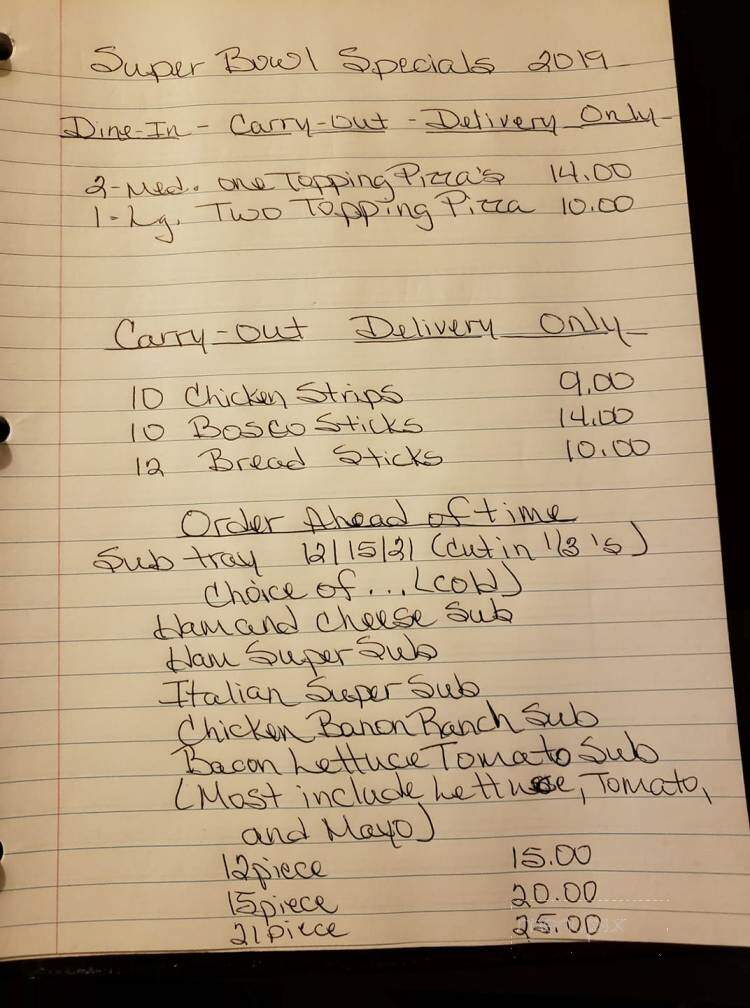 Super Bowl Specials 2019
Dine-In - Carry-out - Delivery Only
2-Med. one Topping Pizza's 14.00
1-Lg. Two Topping Pizza 10.00
Carry-out Delivery Only
10 Chicken Strips 9.00
10 Bosco Sticks 14.00
12 Bread Sticks 10.00
Order Ahead of time
Sub tray 12/15/21 (cut in 1/3's)
Choice of... (cold)
Ham and cheese Sub
Ham Super Sub
Italian Super Sub
Chicken Banon Ranch Sub
Bacon Lettuce Tomato Sub
(Most include Lettuce, Tomato,
and Mayo)
12piece 15.00
15piece 20.00
21piece 25.00